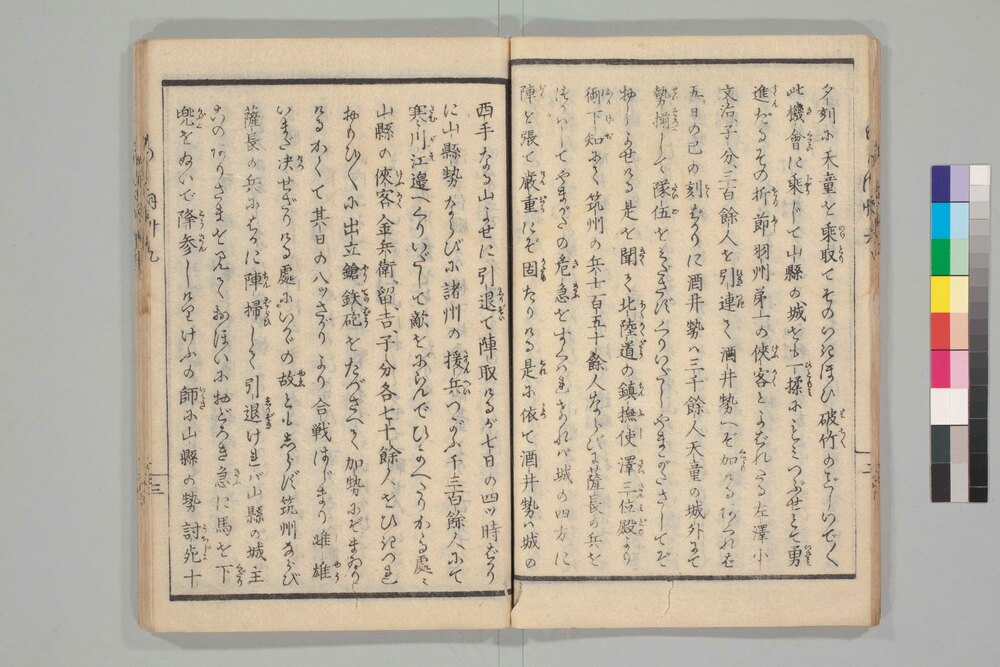 夕刻に天童を乗取てそのいきほひ破竹のごといでく
此機會に乗じて山縣の城をも一揉にもみつぶせとて勇
進だるその折節羽州第一の侠客とよばれたる左澤小
文治子分三百餘人を引連て酒井勢へぞ加りける
五日の已の刻ばかりに酒井勢ハ三千餘人天童の城外まで
勢揃して隊伍を やまがたさしてぞ
おしよせける是を聞て北陸道の鎮撫使澤三位殿より
御下知にて筑州の兵七百五十餘人ならびに薩長の兵を
して やまがたの危急をすくはれければ城の四方に
陣を張て厳重にぞ固たりける是に依て酒井勢ハ城の
西手なる山よせに引退て陣取けるが七日の四ツ時ばかり
に山縣勢ならびに諸州の援兵つがふ千三百餘人にて
寒川江邊へくりいだして敵を ひかへたりかゝる處に
山縣の侠客金兵衛、留吉、子分各七十餘人をひきつれ
おもひ〳〵に出立鎗鉄砲をたづさへて加勢にぞまゐり
けるかくて其日の八ツさがりより合戦はじまり雌雄
いまだ决せざりける處にいかなる故ともしらず筑州ならび
薩長の兵にはかに陣掃して引退けれバ山縣の城主
このありさまを見ておほいにおどろき急に馬を下
兜をぬいで降参しけりけふの師に山縣の勢討死十